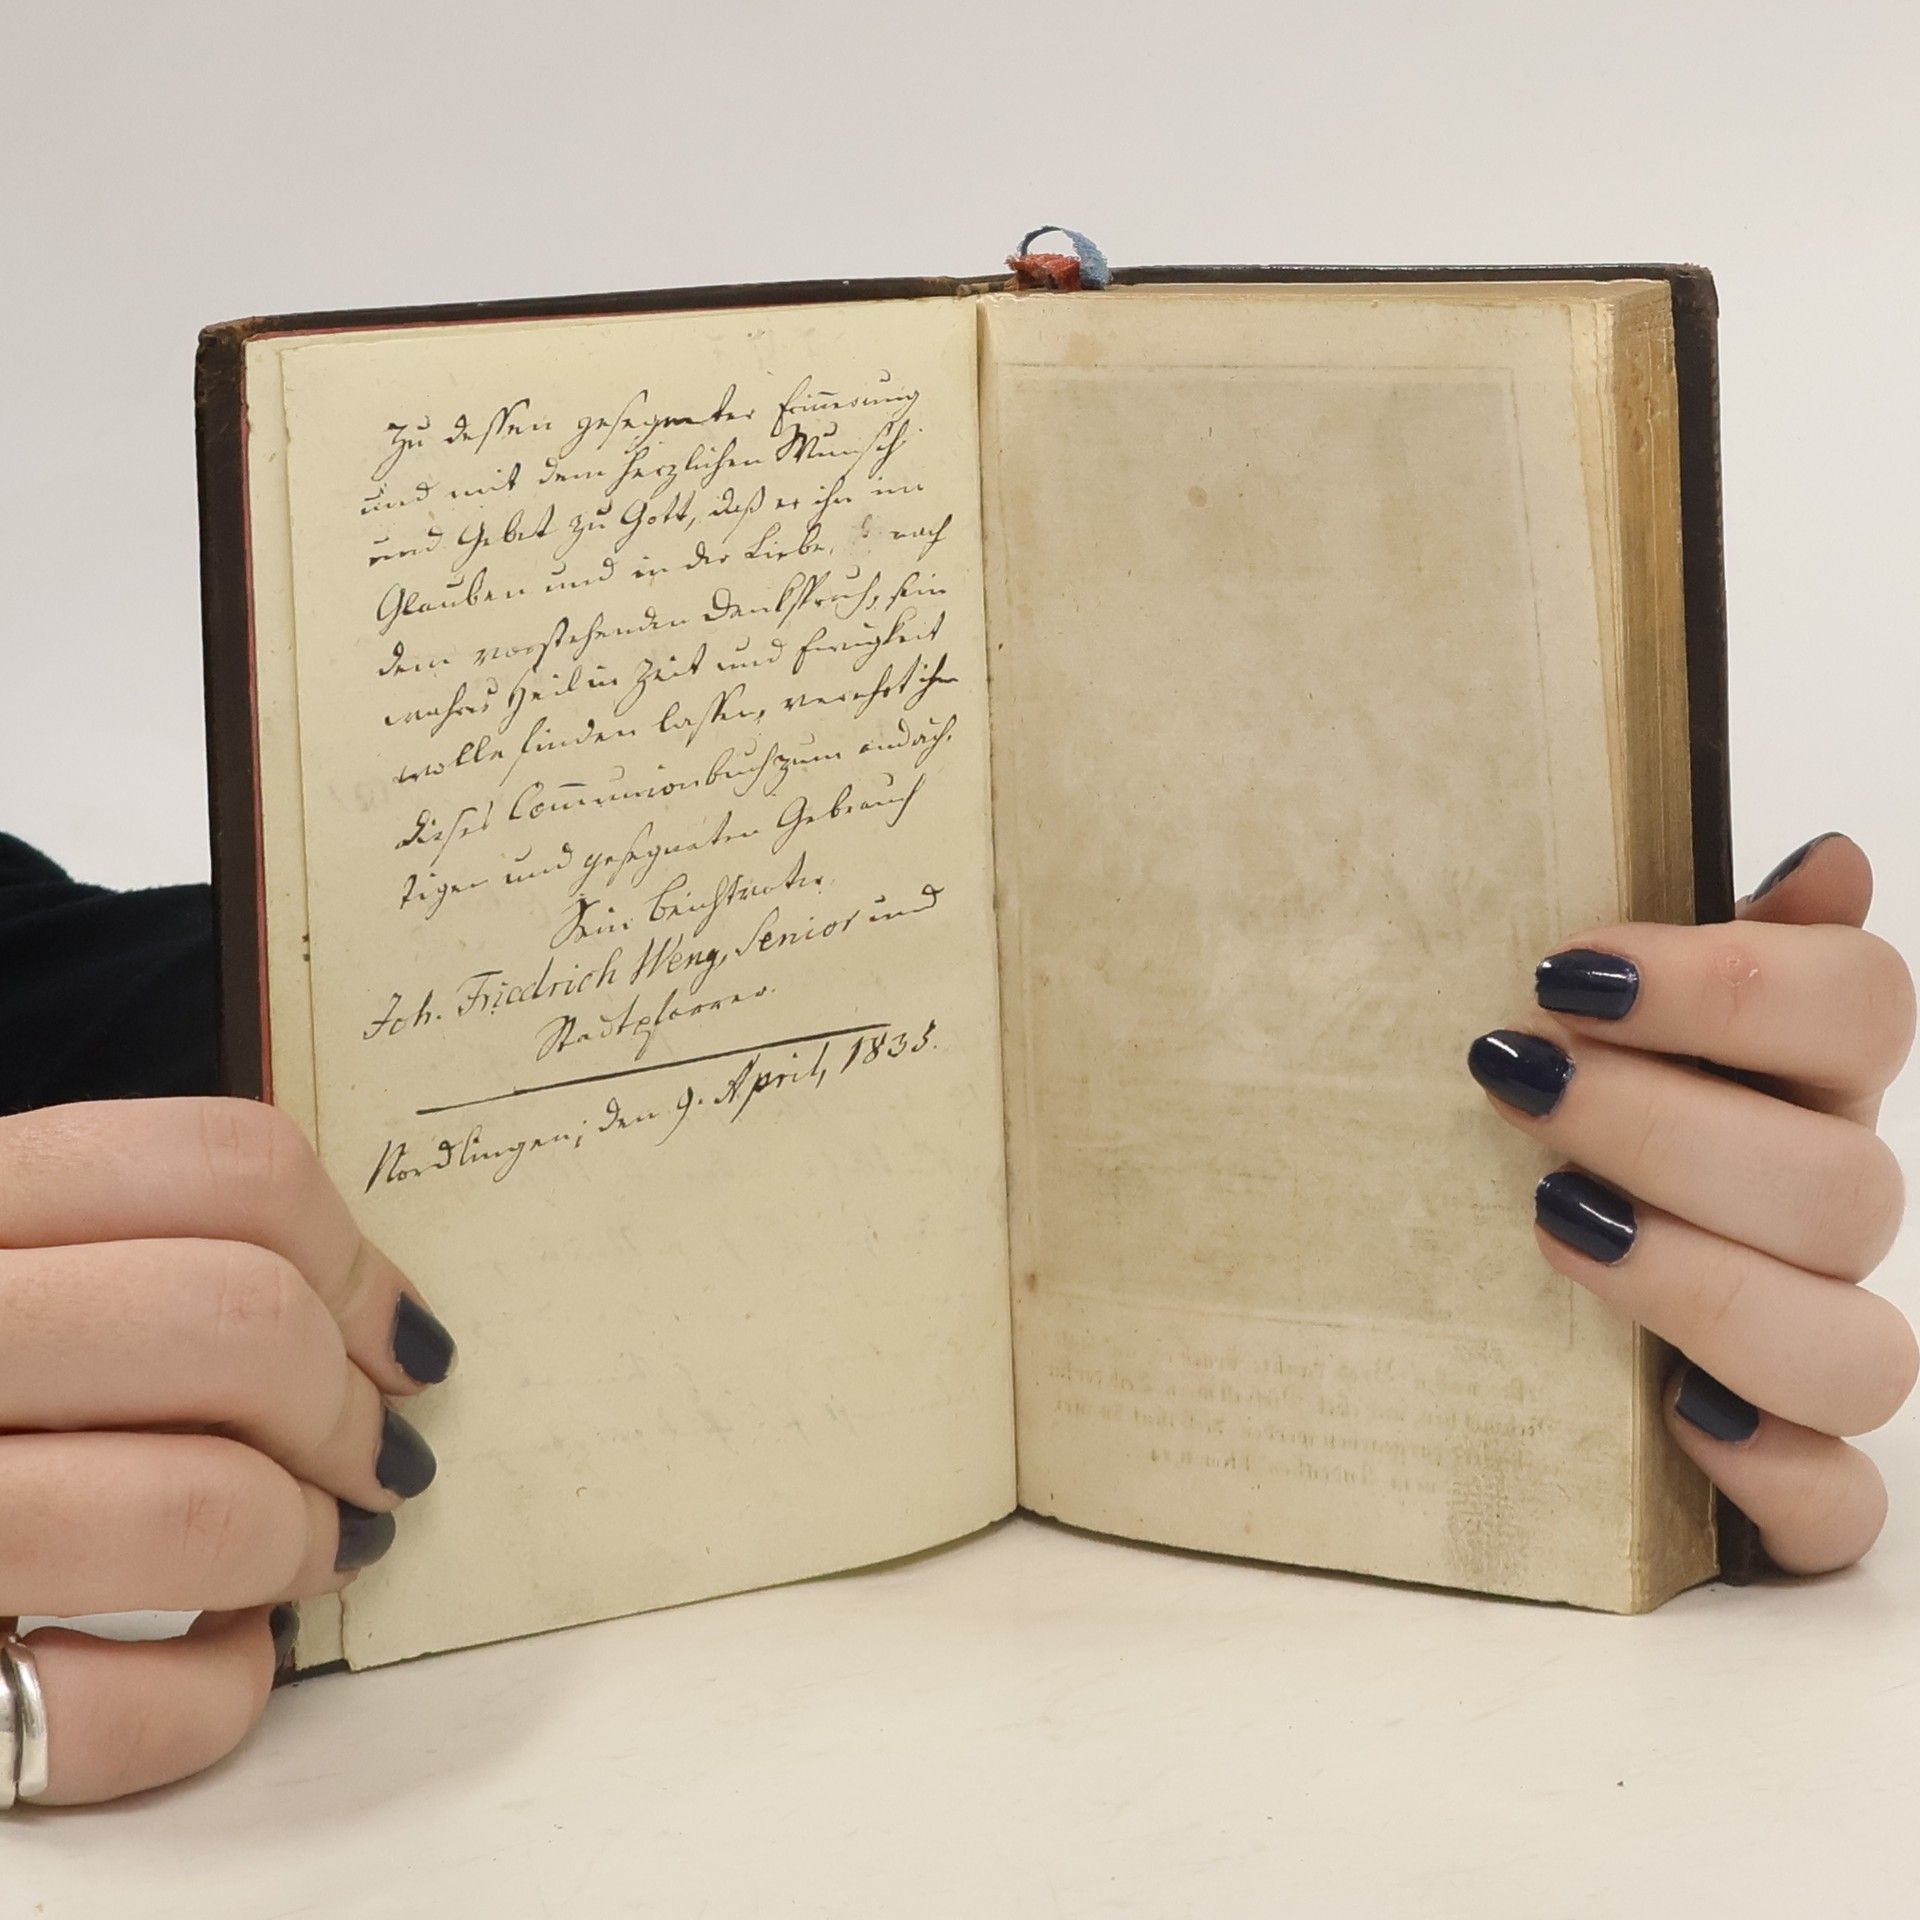 Zu dessen gesegneter Erin̄erung
und mit dem herzlichen Wunsch
und Gebet zu Gott, daß er ihn im
Glauben und in der Liebe, nach
dem vorstehenden Denkspruch, sein
wahres Heil in Zeit und Ewigkeit
wolle finden lassen, verehrt ihm
dieses Com̄unionbuch zum andäch-
tigen und gesegneten Gebrauch
Sein Beichtvater
Joh. Friedrich Weng, Senior und
Stadtpfarrer.
Nördlingen, den 9. April, 1833.